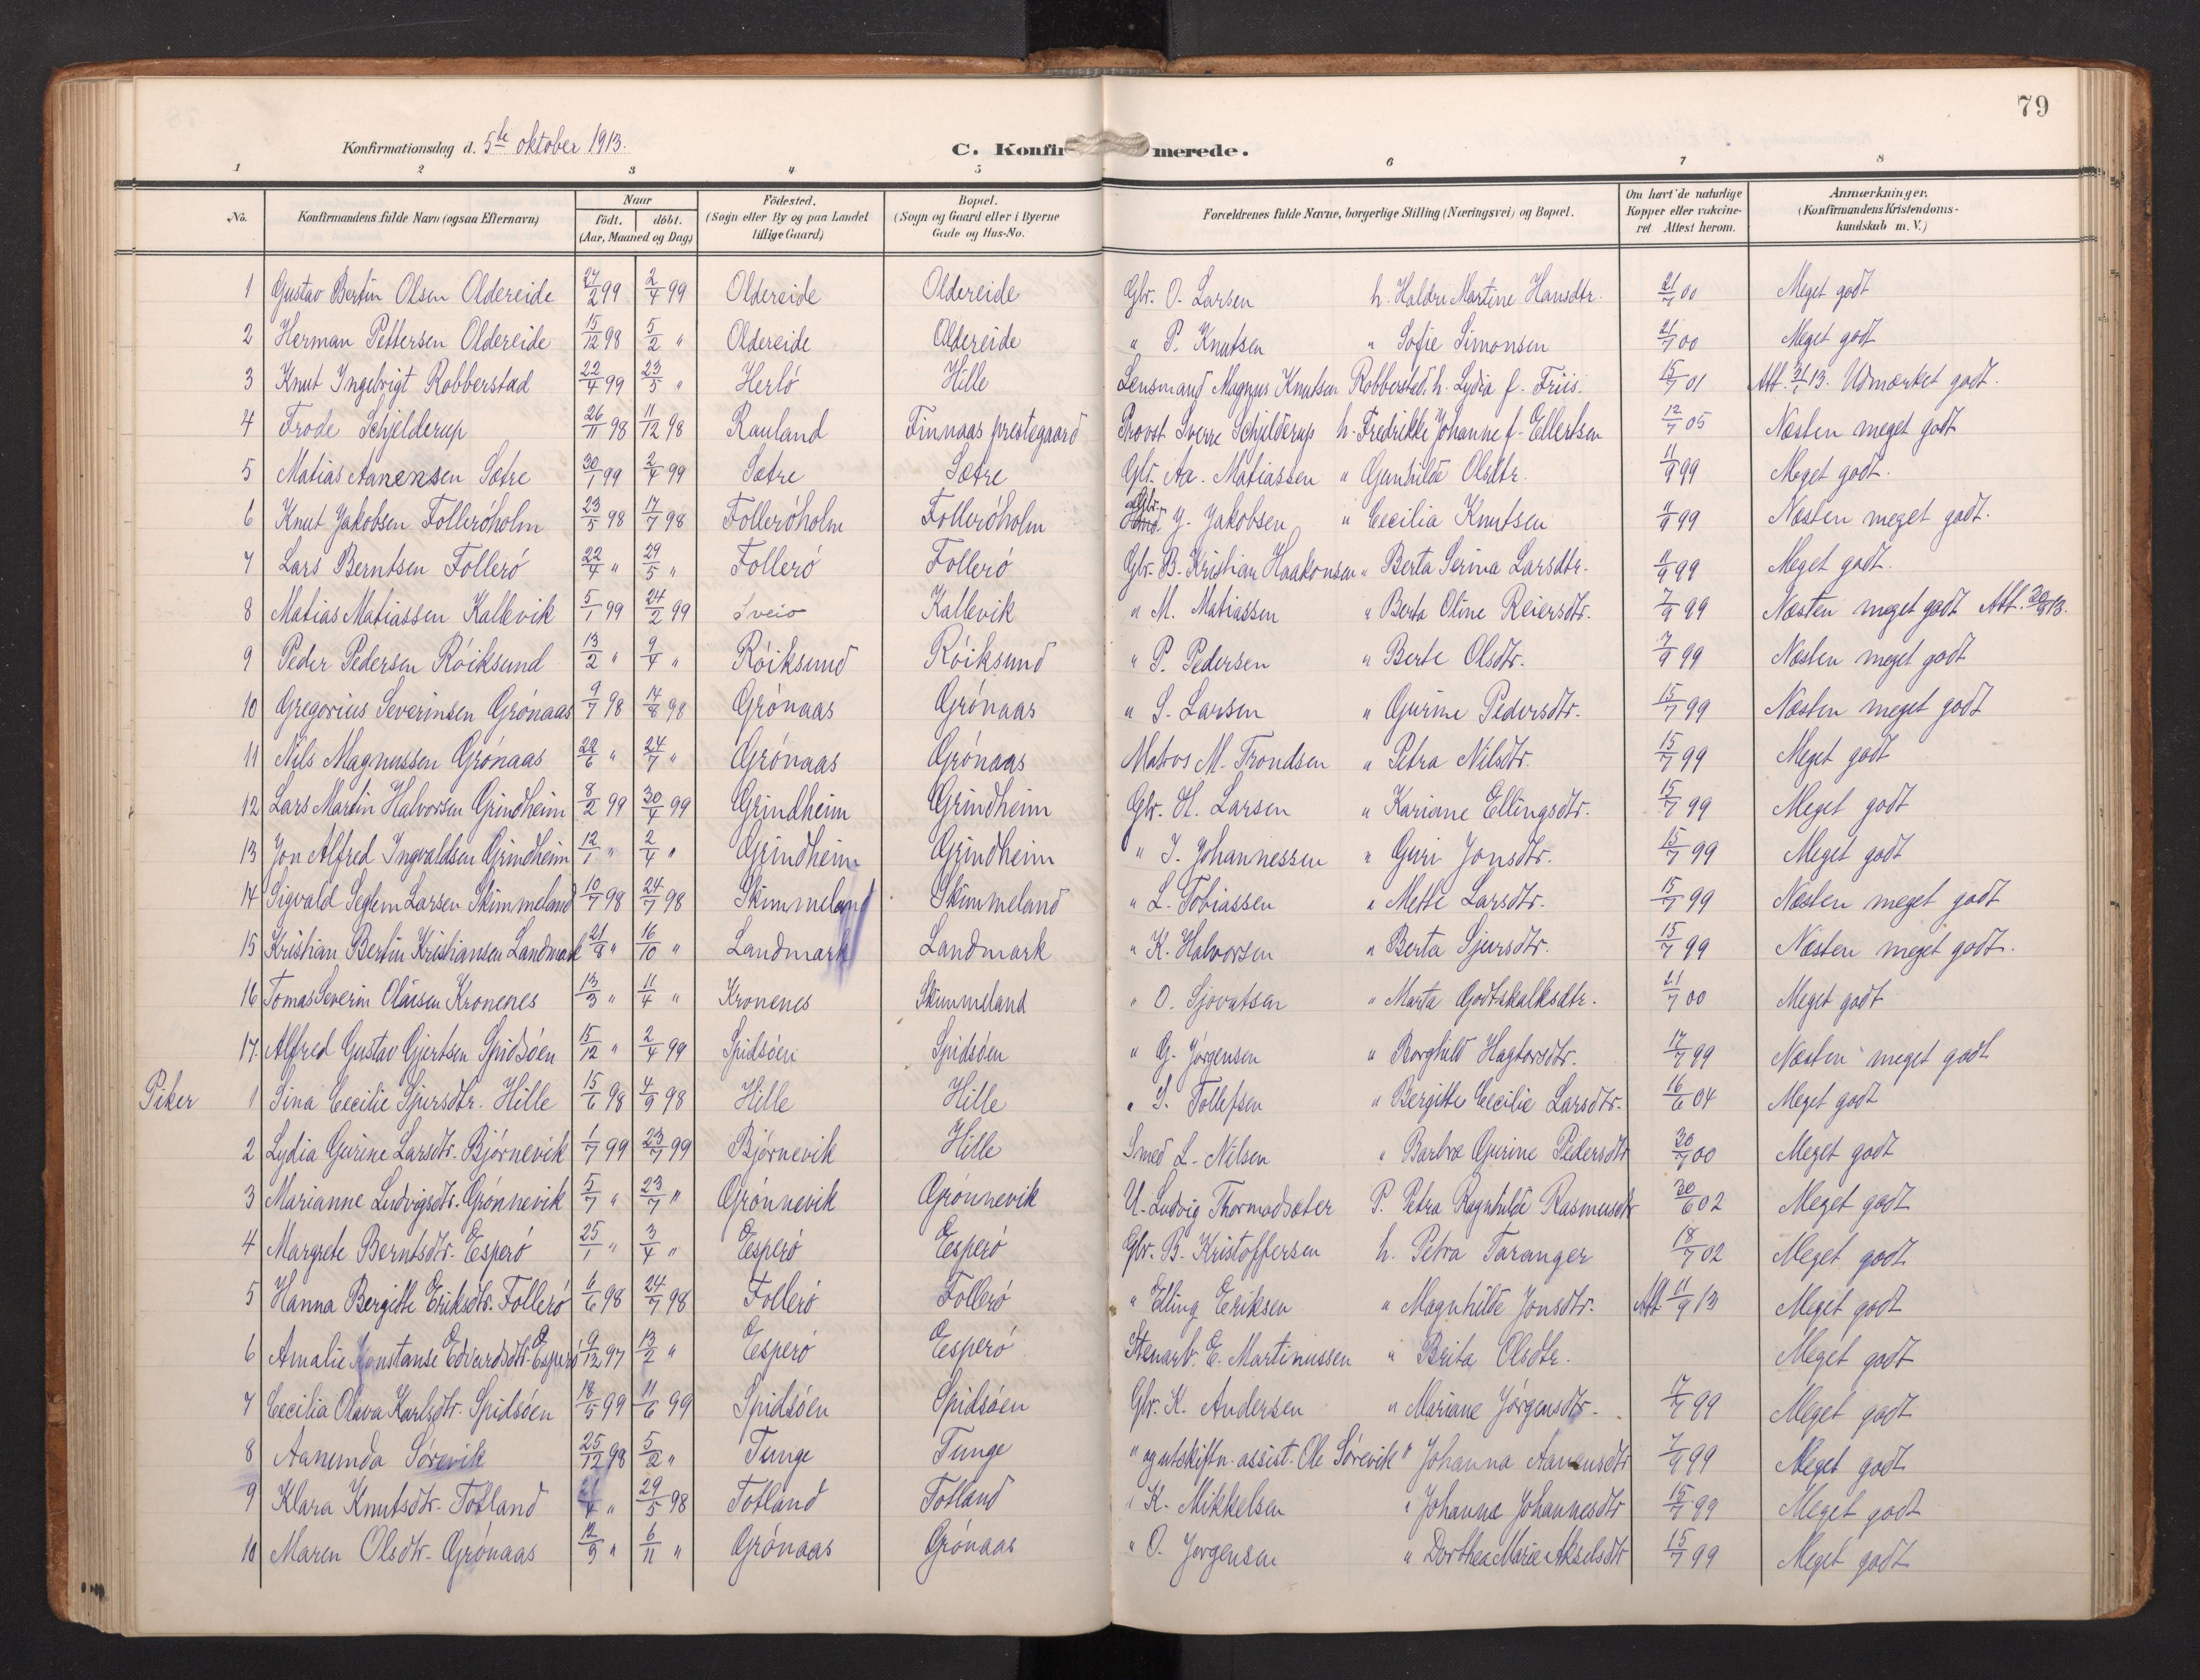 79
Konfirmationsdag d. 5te oktober 1913.
C. Konfirmerede.
1 2 3 4 5 6 7 8
No. Konfirmandens fulde Navn (ogsaa Efternavn) Naar født. døbt. (Aar, Maaned og Dag) Fødested. (Sogn eller By og paa Landet tillige Gaard) Bopæl. (Sogn og Gaard eller i Byerne Gade og Hus-No. Forældrenes fulde Navne, borgerlige Stilling (Næringsvei) og Bopæl. Om havt de naturlige Kopper eller vakcineret Attest herom. Anmærkninger. (Konfirmandens Kristendomskundskab m. V.)
1 Gustav Bertin Olsen Oldereide 27/2 99 2/4 99 Oldereide Oldereide Gbr. O. Larsen h. Haldri Martine Hansdtr. 21/7 00 Meget godt
2 Herman Pettersen Oldereide 15/12 98 5/2 " Oldereide Oldereide " P. Knutsen " Sofie Simonsen 21/7 00 Meget godt
3 Knut Ingebrigt Robberstad 22/4 99 23/5 " Herlø Hille Lensmand Magnus Knutsen Robberstad, h. Lydia f. Friis. 15/7 01 Att. 13. Udmærket godt.
4 Frode Schjelderup 26/11 98 11/12 98 Rauland Finnaas prestegaard Provst Sverre Schjelderup h. Fredrikke Johanne f. Ellertsen 12/7 05 Næsten meget godt
5 Matias Aanensen Sætre 30/1 99 2/4 99 Sætre Sætre Gbr. Aa. Matiassen " Gunhilde Olsdtr. 11/9 99 Meget godt.
6 Knut Jakobsen Follerøholm 23/5 98 17/7 98 Follerøholm Follerøholm Gbr. J. Jakobsen " Cecilia Knutsen 11/9 99 Næsten meget godt.
7 Lars Berntsen Follerø 22/4 " 29/5 " Follerø Follerø Gbr. B. Kristian Haakonsen " Berta Serina Larsdtr. 11/9 99 Meget godt.
8 Matias Matiassen Kallevik 5/1 99 24/2 99 Sveio Kallevik " M. Matiassen " Berta Oline Reiersdtr. 7/9 99 Næsten meget godt Att. 13.
9 Peder Pedersen Røiksund 13/2 " 9/4 " Røiksund Røiksund " P. Pedersen " Berte Olsdtr. 7/9 99 Næsten meget godt
10 Gregorius Severinsen Grønaas 9/7 98 14/8 98 Grønaas Grønaas " S. Larsen " Gurine Pedersdtr. 15/7 99 Næsten meget godt
11 Nils Magnussen Grønaas 22/6 " 24/7 " Grønaas Grønaas Matros M. Trondsen " Petra Nilsdtr. 15/7 99 Meget godt
12 Lars Martin Halvorsen Grindheim 8/2 99 30/4 99 Grindheim Grindheim Gbr. H. Larsen " Kariane Ellingsdtr. 15/7 99 Meget godt
13 Jon Alfred Ingvaldsen Grindheim 12/1 " 2/4 " Grindheim Grindheim " I. Johannessen " Guri Jonsdtr. 15/7 99 Meget godt
14 Sigvald Seglem Larsen Skimmeland 10/7 98 24/7 98 Skimmeland Skimmeland " L. Tobiassen " Mette Larsdtr. 15/7 99 Næsten meget godt
15 Kristian Bertin Kristiansen Landmark 21/9 " 16/10 " Landmark Landmark " K. Halvorsen " Berta Sjursdtr. 15/7 99 Næsten meget godt.
16 Tomas Severin Olaisen Kronenes 13/3 " 11/4 " Kronenes Skimmeland " O. Sjovatsen " Marta Godtskalksdtr. 21/7 00 Meget godt
17. Alfred Gustav Gjertsen Spidsøen 15/12 " 2/4 99 Spidsøen Spidsøen " G. Jørgensen " Borghild Hagtorsdtr. 17/7 99 Næsten meget godt
Piker 1 Sina Cecilie Sjursdtr. Hille 15/6 98 4/9 98 Hille Hille " S. Tollefsen " Bergitte Cecilie Larsdtr. 16/6 04 Meget godt
2 Lydia Gurine Larsdtr. Bjørnevik 1/7 99 23/7 99 Bjørnevik Hille Smed L. Nilsen " Barbra Gurine Pedersdtr 30/7 00 Meget godt
3 Marianne Ludvigsdtr. Grønnevik 5/7 " 23/7 " Grønnevik Grønnevik U. Ludvig Thormodsæter P. Petra Ragnhilde Rasmusdtr 30/6 02 Meget godt
4 Margrete Berntsdtr. Esperø 25/1 " 3/4 " Esperø Esperø Gbr. B. Kristoffersen h. Petra Taranger 18/7 02 Meget godt
5 Hanna Bergitte Eriksdtr. Follerø 6/6 98 24/7 98 Follerø Follerø " Elling Eriksen " Magnhilde Jonsdtr. Att. 11/9 13 Meget godt
6 Amalie Konstanse Edvardsdtr. Esperø 9/12 97 13/2 " Esperø Esperø Stenarb. E. Martinussen " Brita Olsdtr. Meget godt
7 Cecilia Olava Karlsdtr. Spidsøen 18/5 99 11/6 99 Spidsøen Spidsøen Gbr. K. Andersen " Mariane Jørgensdtr. 99 Meget godt
8 Aanunda Sørevik 25/12 98 5/2 " Tunge Tunge " og utskiftn. assist. Ole Sørevik " Johanna Aanensdtr 7/9 99 Meget godt
9 Klara Knutsdtr. Totland " 29/5 98 Totland Totland " K. Mikkelsen " Johanna Johannesdtr 15/7 99 Meget godt
10 Maren Olsdtr. Grønaas 12/9 " 6/11 " Grønaas Grønaas " O. Jørgensen " Dorthea Marie Akselsdtr 15/7 99 Meget godt